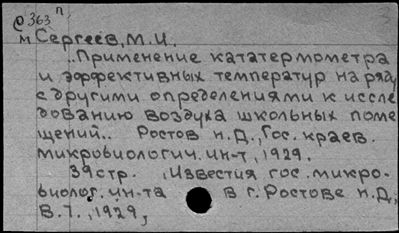 е 363 п
м Сергеев, М.И.
„Применение кататермометра
и эффективных температур на ряду
с другими определениями к иссле
дованию воздуха школьных поме
щений.. Ростов н.Д., Гос. краев.
микробиологич. ин-т, 1929.
39 стр. „Известия гос. микро-
биолог. ин-та в г. Ростове н.Д,
В.7., 1929,